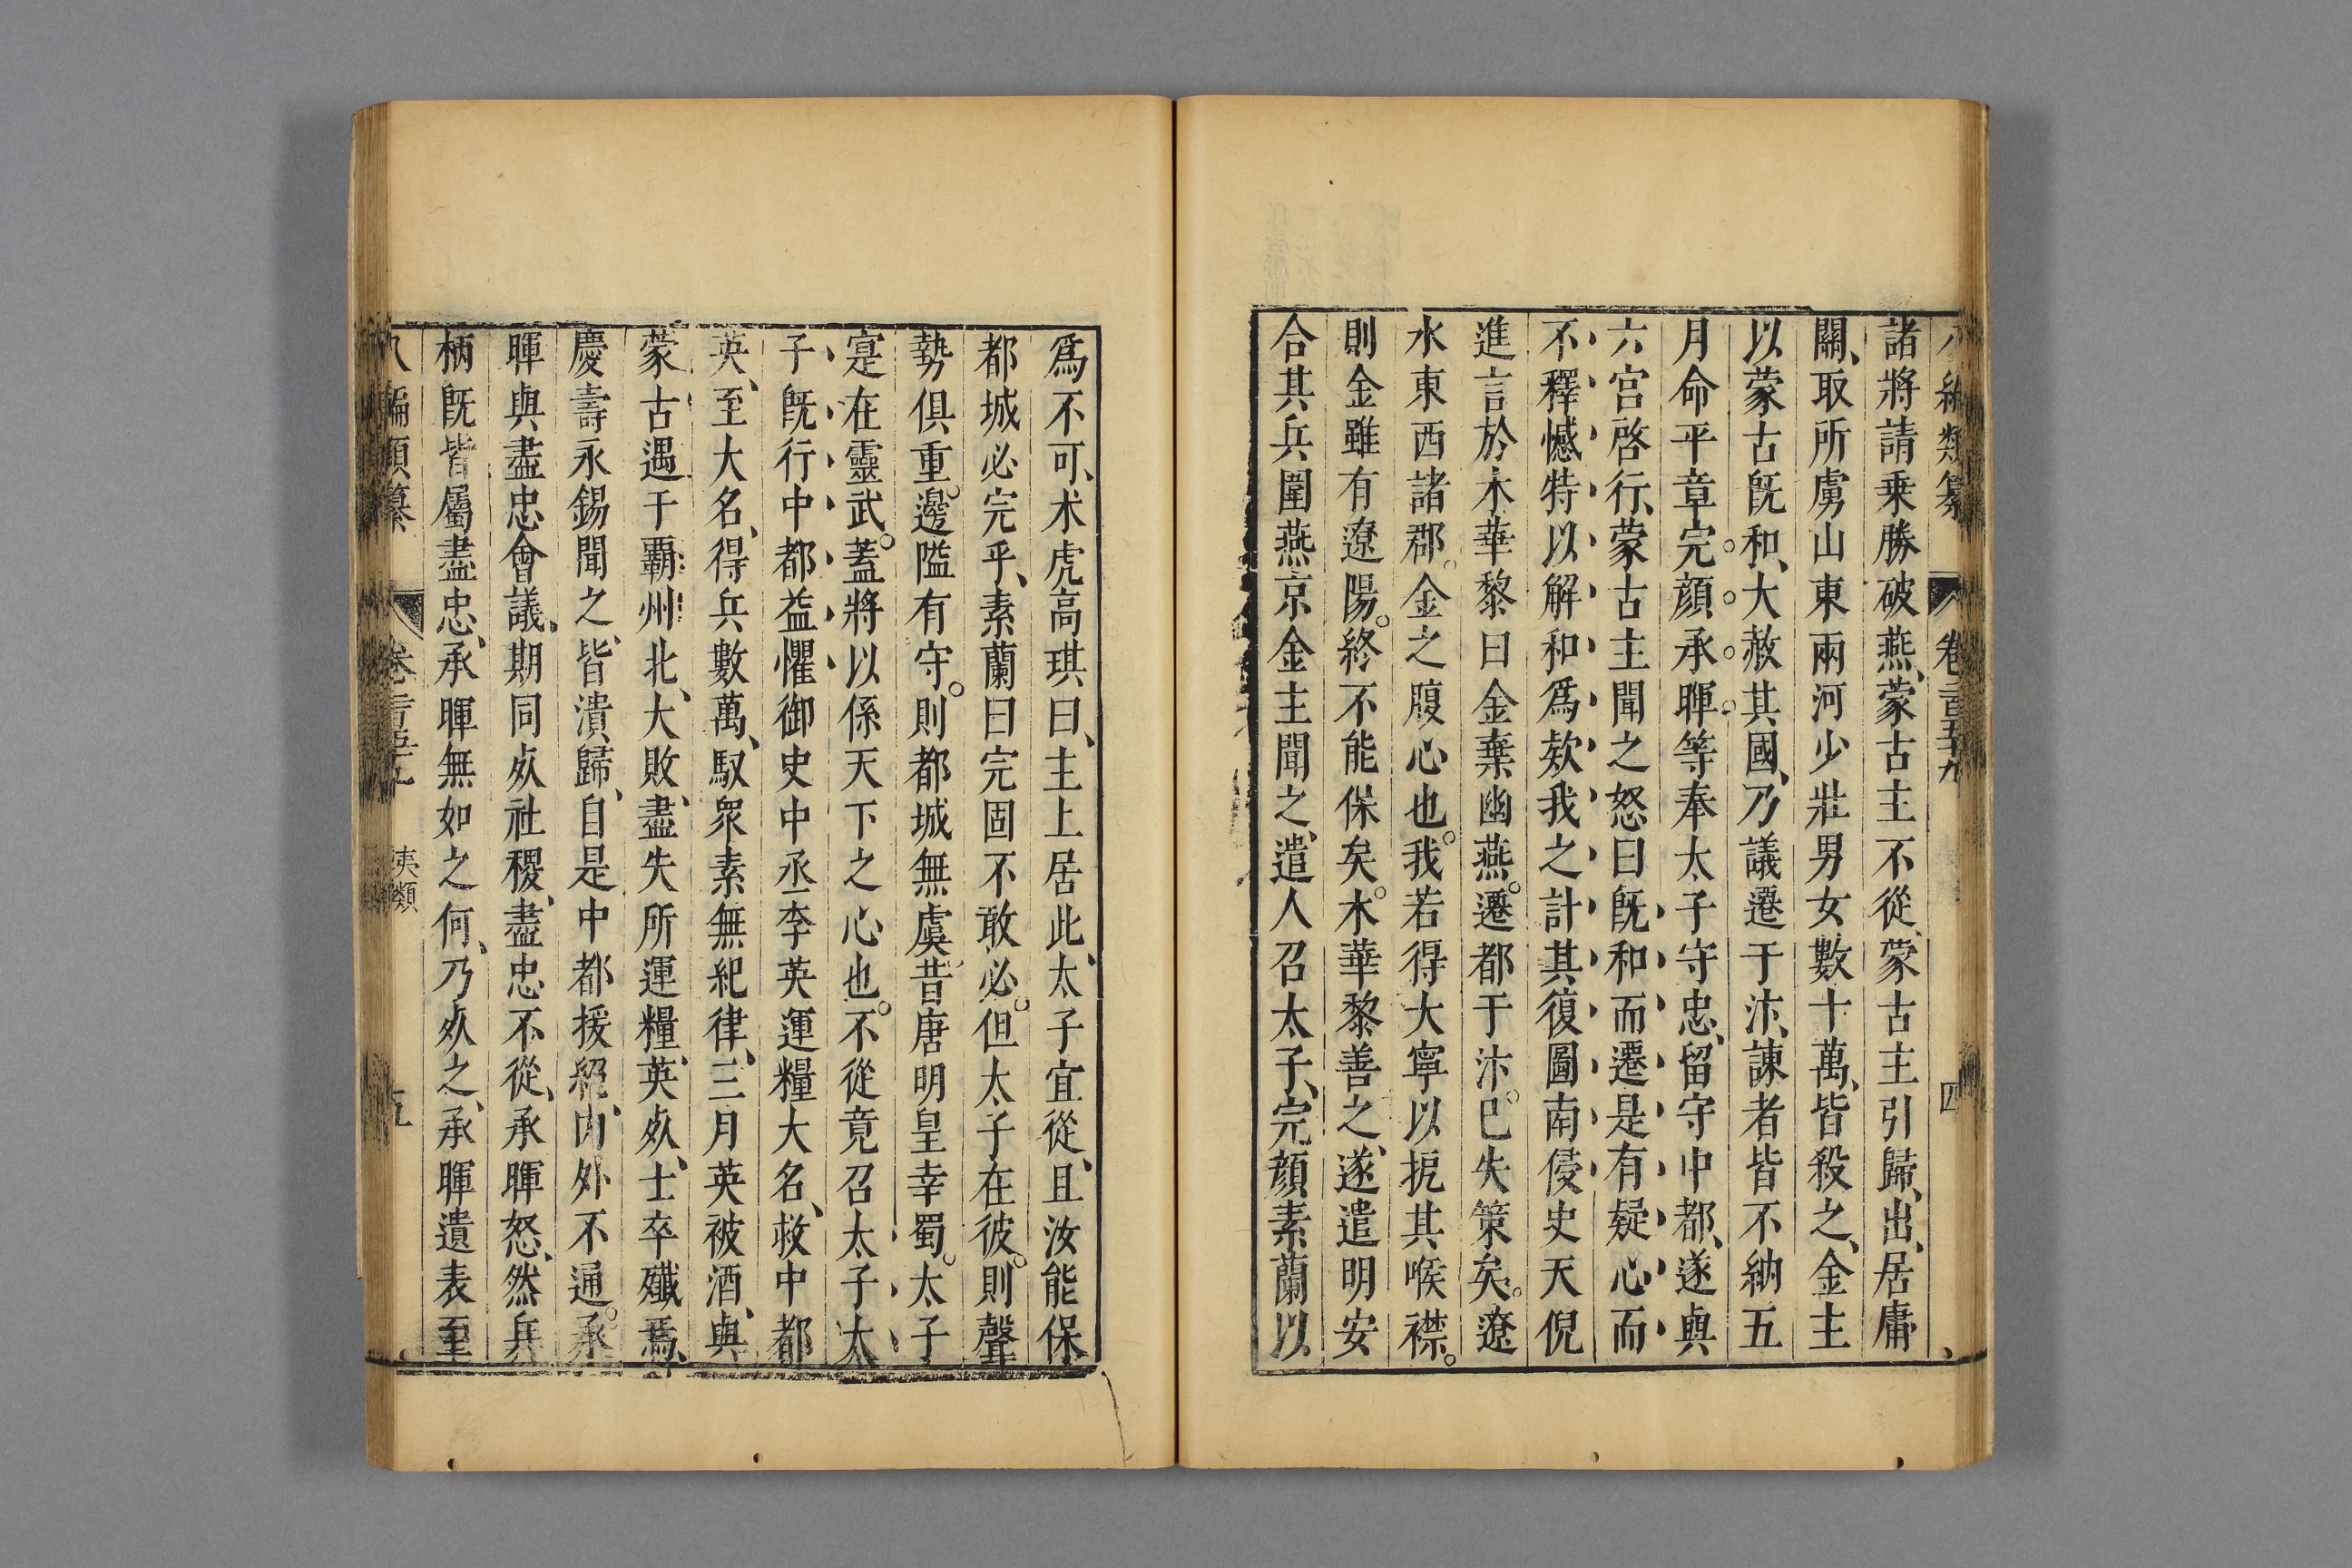 諸將請乗勝破燕、蒙古主不從、蒙古主引歸、出、居庸
關、取所虜山東兩河少壯男女數十萬、皆殺之、金主
以蒙古旣和、大赦其國、乃議遷于汴、諫者皆不納五
月命平章完顔承暉等奉太子守忠、留守中都、遂與
六宫啓行、蒙古主聞之怒曰旣和而遷是有疑心而
不釋憾特以解和爲欵我之計其復圖南侵史天倪
進言於木華黎曰金棄幽燕。遷都于汴。巳失策矣。遼
水東西諸郡。金之腹心也。我若得大寧以扼其喉襟。
則金雖有遼陽。終不能保矣。木華黎善之、遂遣明安
合其兵圍燕京金主聞之、遣人召太子、完顔素蘭以
爲不可、术虎高琪曰、主上居此、太子宜從、且汝能保
都城必完乎、素蘭曰完固不敢必。但太子在彼。則聲
勢俱重。邊隘有守。則都城無虞、昔唐明皇幸蜀。太子
寔在靈武。蓋將以係天下之心也。不從竟召太子太
子旣行中都益懼御史中丞李英運糧大名、救中都
英、至大名、得兵數萬、馭衆素無紀律、三月英被酒、與
蒙古遇于霸州北、大敗、盡失所運糧、英㱥、士卒殲焉、
慶壽永錫聞之、皆潰歸、自是中都援絕、内外不通。承
暉與盡忠會議、期同㱥社稷、盡忠不從、承暉怒、然兵
柄旣皆屬盡忠、承暉無如之何、乃㱥之、承暉遺表至
八編類纂 卷二百五十九 夷類 五